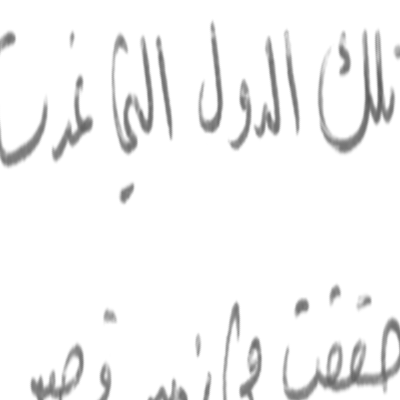 تلك الدول التي غدت
حققت في زمن قصير